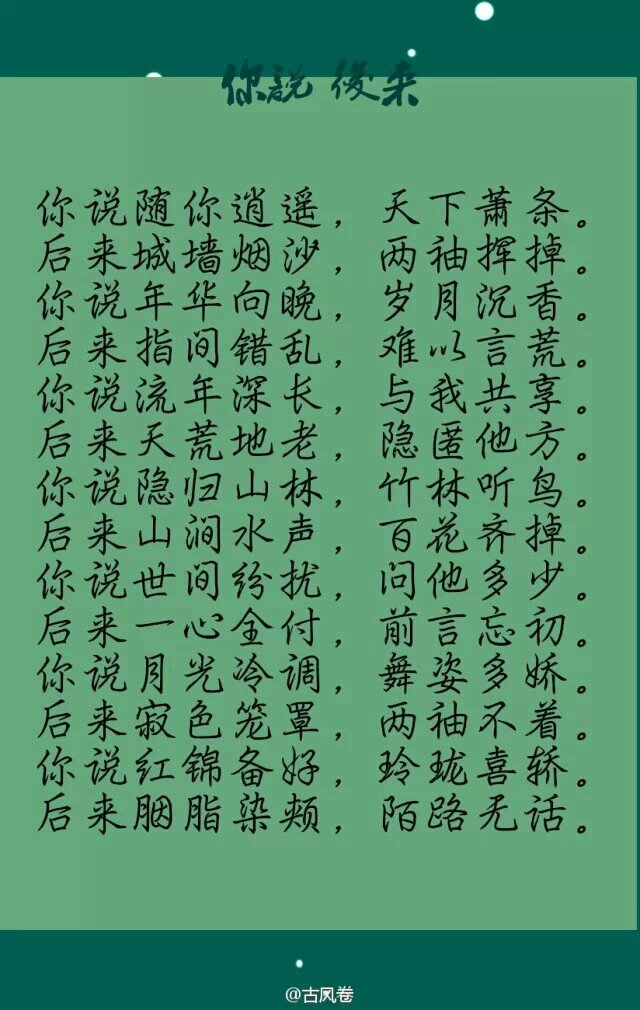 你说 後来
你说随你逍遥，天下萧条。
后来城墙烟沙，两袖挥掉。
你说年华向晚，岁月沉香。
后来指间错乱，难以言荒。
你说流年深长，与我共享。
后来天荒地老，隐匿他方。
你说隐归山林，竹林听鸟。
后来山涧水声，百花齐掉。
你说世间纷扰，问他多少。
后来一心全付，前言忘初。
你说月光冷调，舞姿多娇。
后来寂色笼罩，两袖不着。
你说红锦备好，玲珑喜轿。
后来胭脂染颊，陌路无话。
@古风卷